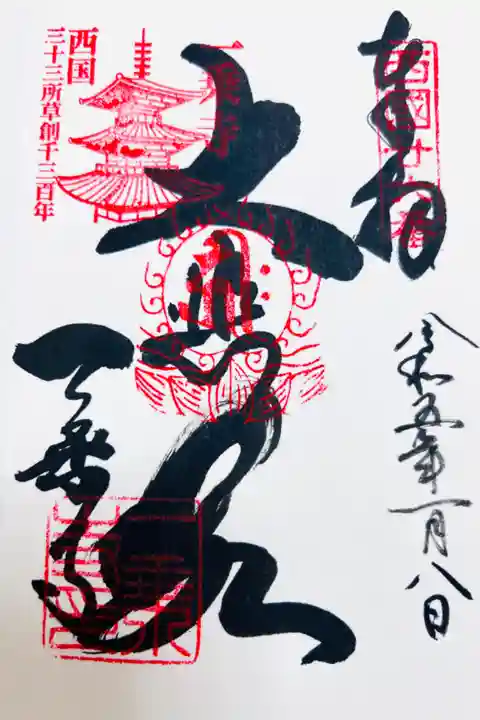 奉拝
西國廿六番
令和五年一月八日
大悲閣
西国
三十三所草創千三百年
一乗寺